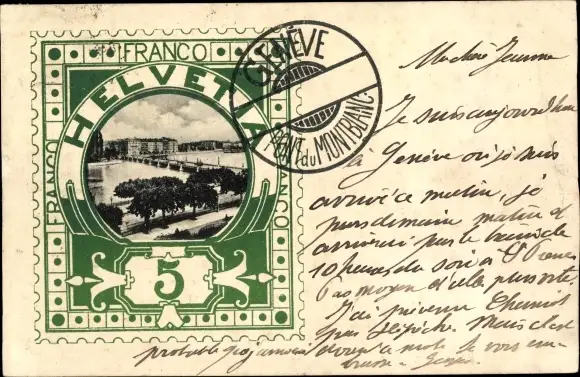 FRANCO
HELVETIA
FRANCO
FRANCO
5
GENÈVE
PONT du MONTBLANC.
Ma chère Jeanne
Je suis aujourd'hui
à Genève où je suis
arrivé ce matin, je
pars demain matin et
arriverai par le train de
10 heures du soir à
Pas moyen d'aller plus vite.
J'ai prévenu
par dépêche. Mais c'est
probable